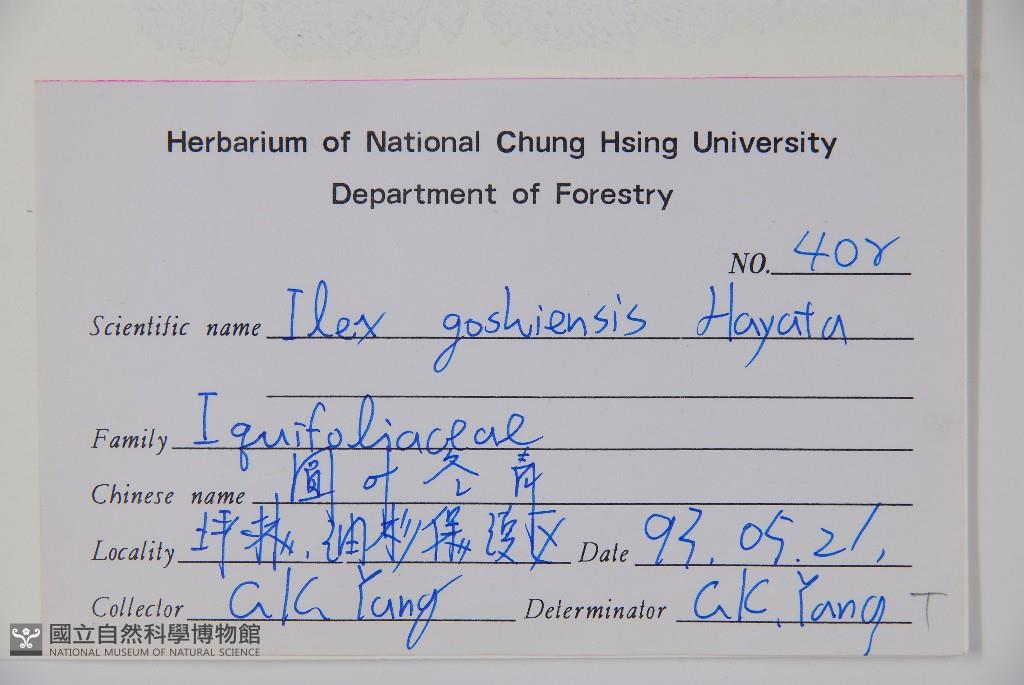 Herbarium of National Chung Hsing University
Department of Forestry
NO. 402
Scientific name Ilex goshiensis Hayata
Family Iquifoliaceae
Chinese name 圓叶冬青
Locality 坪林.油杉保護区 Date 93.05.21.
Collector G.K. Yang Determinator G.K. Yang T
國立自然科學博物館
NATIONAL MUSEUM OF NATURAL SCIENCE